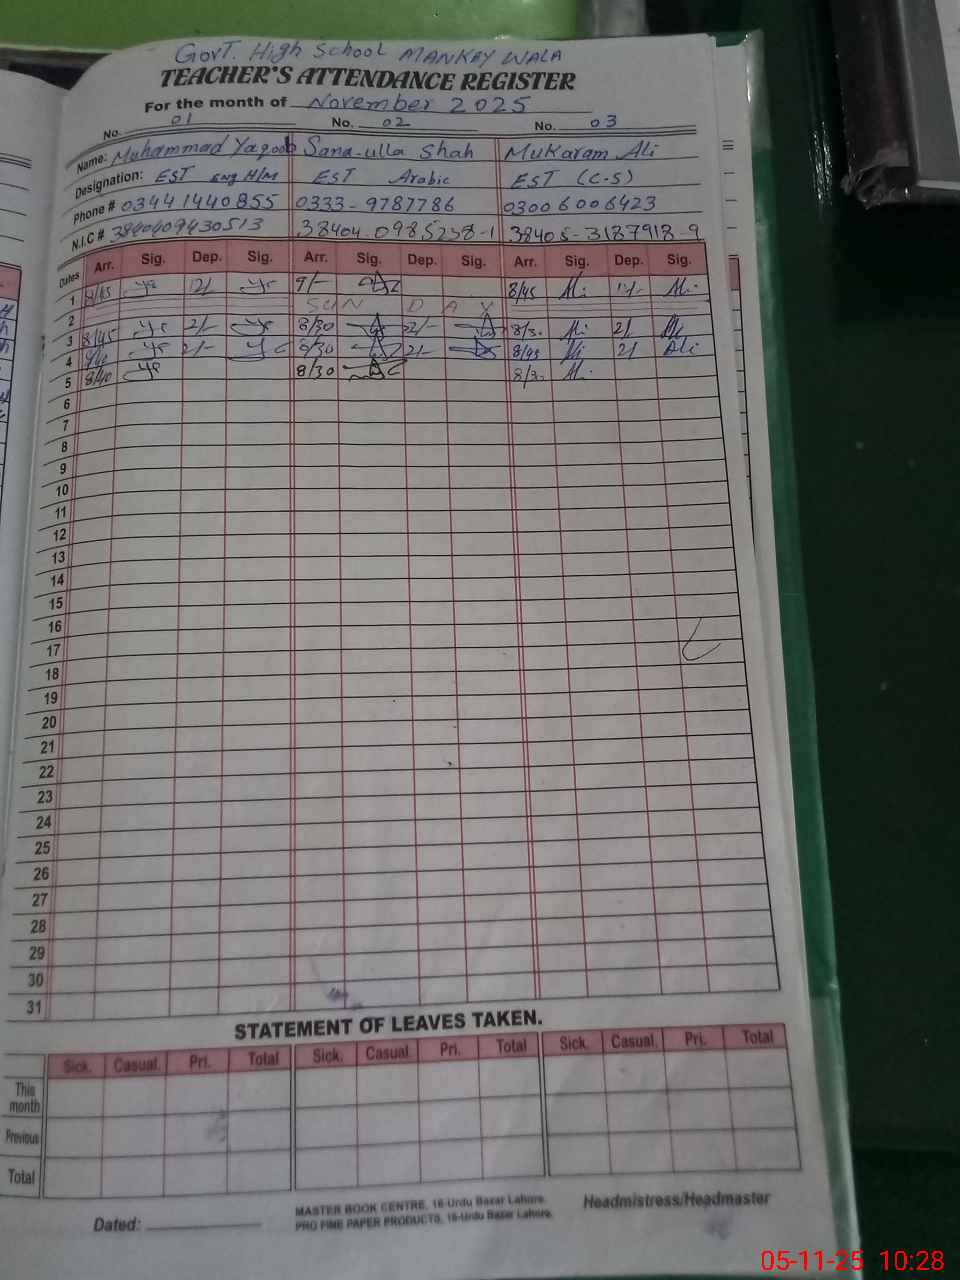 GovT. High School MANKAY WALA
TEACHER'S ATTENDANCE REGISTER
For the month of November 2025
No. 01 No. 02 No. 03
Name: Muhammad Yaqoob Sana-ulla Shah Mukaram Ali
Designation: EST Eng H/M EST Arabic EST (C.S)
Phone # 03441440855 0333-9787786 03006006423
N.I.C # 3840409430513 38404-0985238-1 38405-3187918-9
Dates Arr. Sig. Dep. Sig. Arr. Sig. Dep. Sig. Arr. Sig. Dep. Sig.
1 8/45 12/- 9/- 8/45 Ali 12/- Ali
2 SUNDAY
3 8/45 2/- 8/30 2/- 8/30 Ali 2/
4 2/- 8/30 2/- 8/45 Ali 2/ Ali
5 8/40 8/30 8/30 Ali
6
7
8
9
10
11
12
13
14
15
16
17
18
19
20
21
22
23
24
25
26
27
28
29
30
31
STATEMENT OF LEAVES TAKEN.
Sick. Casual. Pri. Total Sick. Casual. Pri. Total Sick. Casual. Pri. Total
This month
Previous
Total
Dated: MASTER BOOK CENTRE, 16-Urdu Bazar Lahore. Headmistress/Headmaster
PRO FINE PAPER PRODUCTS, 16-Urdu Bazar Lahore.
05-11-25 10:28